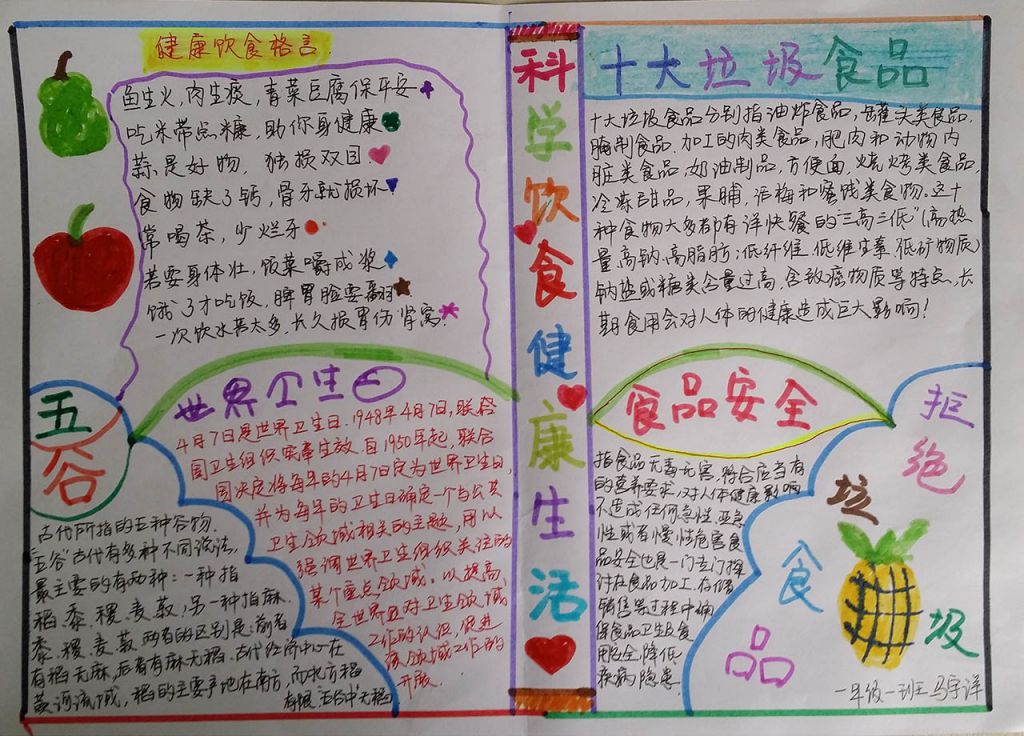 健康饮食格言
鱼生火,肉生痰,青菜豆腐保平安
吃米带点糠,助你身健康
蒜是好物,独损双目
食物缺了钙,骨牙就损坏
常喝茶,少烂牙
若要身体壮,饭菜嚼成浆
饿了才吃饭,脾胃脸要翻
一次饮水莫太多,长久损胃伤肾窝
世界卫生日
4月7日是世界卫生日。1948年4月7日,联合
国卫生组织 生效。自1950年起,联合
国决定将每年的4月7日定为世界卫生日,
并为每年的卫生日确定一个与公共
卫生领域相关的主题,用以
强调世界卫生组织关注的
某个重点领域。以提高
全世界对卫生领域
工作的认识,促进
该领域工作的
开展。
五谷
古代所指的五种谷物.
"五谷"古代有多种不同说法,
最主要的有两种:一种指
稻.黍.稷.麦.菽;另一种指麻.
黍.稷.麦.菽.两者的区别是:前者
有稻无麻,后者有麻无稻.古代经济中心在
黄河流域,稻的主要产地在南方,而北方稻
有限,"五谷"中无稻
科学饮食健康生活
十大垃圾食品
十大垃圾食品分别指油炸食品,罐头类食品,
腌制食品,加工的肉类食品,肥肉和动物内
脏类食品,奶油制品,方便面,烧烤类食品,
冷冻甜品,果脯,话梅和蜜饯类食物。这十
种食物大多都有洋快餐的"三高三低"(高热
量.高钠.高脂肪;低纤维.低维生素.低矿物质)
钠盐或糖类含量过高,含致癌物质等特点,长
期食用会对人体的健康造成巨大影响!
食品安全
指食品无毒无害,符合应当有
的营养要求,对人体健康影响
不造成任何急性,亚急
性或者慢性危害.食
品安全也是一门专门探
讨在食品加工.存储
销售等过程中确
保食品卫生及食
用安全,降低
疾病隐患.
拒绝垃圾食品
一年级一班 马宇洋